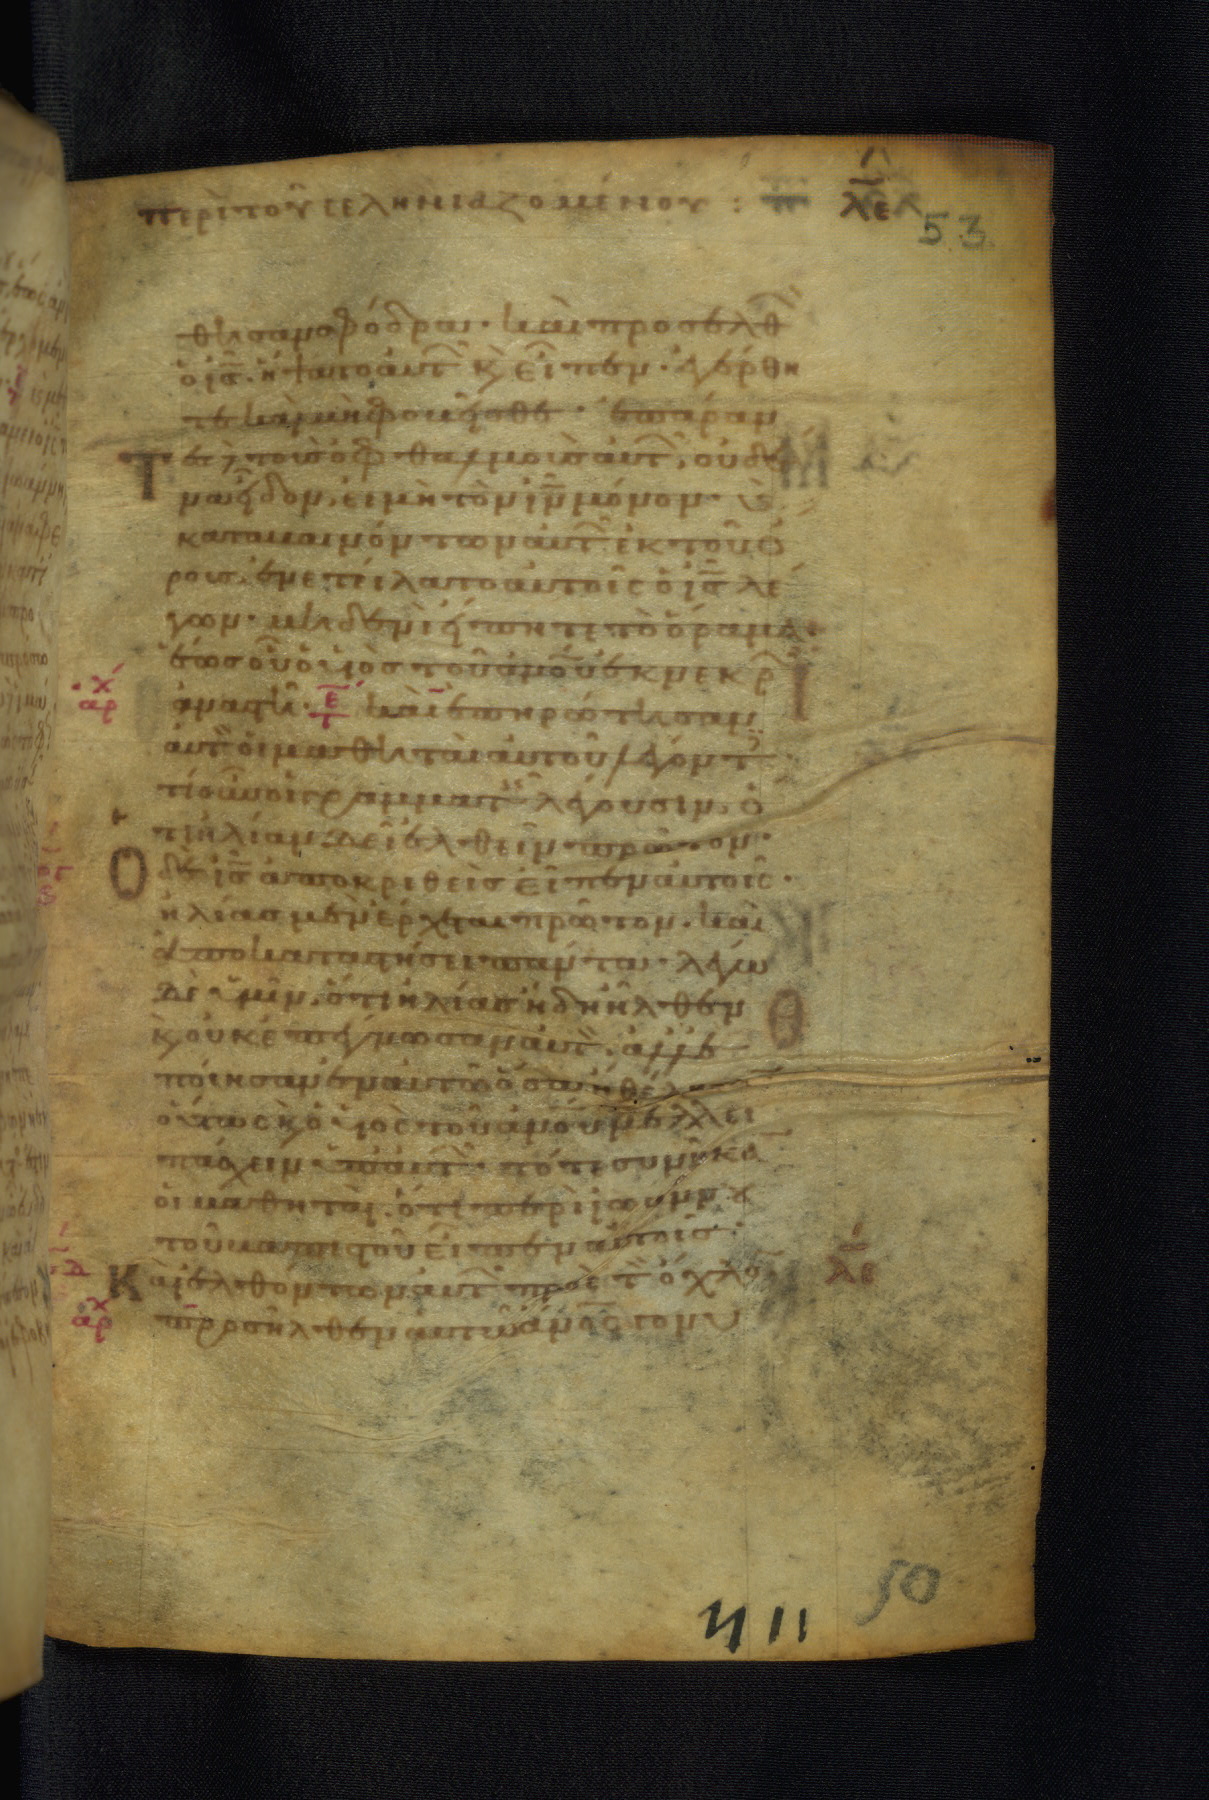 περὶ τοῦ σεληνιαζομένου : λε
53
θησαν σφόδρα· καὶ προσελθ
ὁ ις̅ ἥψατο αὐτ κ̀ εἶπεν· ἐγέρθη
τε καὶ μὴ φοβεῖσθε· ἐπάραν
τες τοὺσ ὀφθαλμοὺσ αὐτ, οὐδέ
να εἶδον, εἰ μὴ τὸν ιν̅ μόνον· κ̀
καταβαινόντων αὐτ ἐκ τοῦ ὄ
ρουσ, ἐνετείλατο αὐτοῖς ὁ ις̅ λέ
γων· μηδενὶ εἴπητε τὸ ὅραμα·
ἕωσ οὗ ὁ υἱὸσ τοῦ ἀνου̅ ἐκ νεκρ
ἀναστῆ· τε καὶ ἐπηρώτησαν
αὐτ οἱ μαθηταὶ αὐτοῦ λέγοντ
τί οὖν οἱ γραμματ λέγουσιν, ὅ
τι ἠλίαν δεῖ ἐλθεῖν πρῶτον·
Ο δὲ ις̅ ἀποκριθεὶσ εἶπεν αὐτοῖς·
ἠλίασ μὲν ἔρχεται πρῶτον· καὶ
ἀποκαταστήσει πάντα· λέγω
δὲ ὑμῖν, ὅτι ἠλίασ ἤδη ἦλθεν
κ̀ οὐκ ἐπέγνωσαν αὐτ, ἀλλ' ἐ
ποίησαν ἐν αὐτῶ ὅσα ἠθέλησαν
οὕτως κ̀ ὁ υἱὸς τοῦ ἀνου̅ μέλλει
πάσχειν ὑπ' αὐτ· τότε συνῆκαν
οἱ μαθηταὶ, ὅτι περὶ ἰωάννου
τοῦ βαπτιστοῦ εἶπεν αὐτοῖσ·
Καὶ ἐλθόντων αὐτ πρὸς τ ὄχλο λε
προσῆλθεν αὐτῶ ἀνος̅ γονυ
50
411